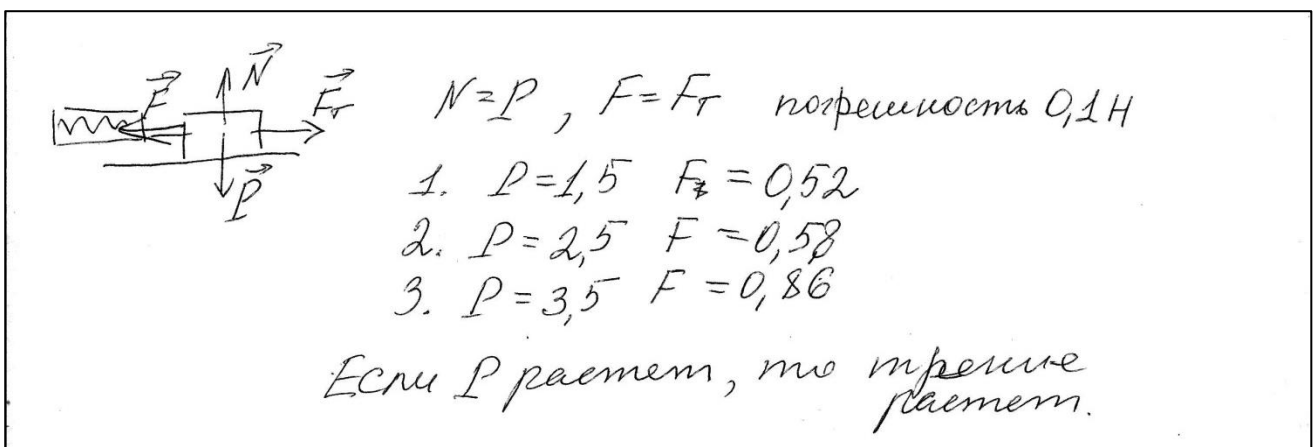 N⃗
F⃗
F⃗т
P⃗
N=P, F=Fт погрешность 0,1Н
1. P=1,5 F = 0,52
2. P=2,5 F =0,58
3. P=3,5 F =0,86
Если P растет, то трение
растет.